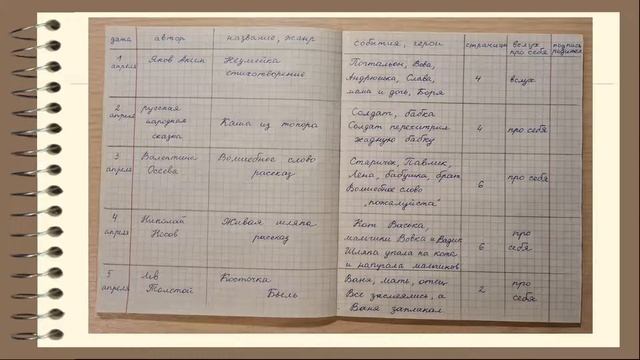 дата
автор
название, жанр
события, герои
страницы
вслух,
про себя
подпись
родителя
1
апреля
Яков Аким
Неумейка
стихотворение
Почтальон, Вова,
Андрюшка, Слава,
мама и дочь, Боря
4
вслух
2
апреля
русская
народная
сказка
Каша из топора
Солдат, бабка
Солдат перехитрил
жадную бабку
4
про себя
3
апреля
Валентина
Осеева
Волшебное слово
рассказ
Старичок, Павлик,
Лена, бабушка, брат
Волшебное слово
"пожалуйста"
6
про себя
4
апреля
Николай
Носов
Живая шляпа
рассказ
Кот Васька,
мальчики Вовка и Вадик
Шляпа упала на кота
и напугала мальчиков
6
про
себя
5
апреля
Лев
Толстой
Косточка
Быль
Ваня, мать, отец
Все засмеялись, а
Ваня заплакал
2
про
себя